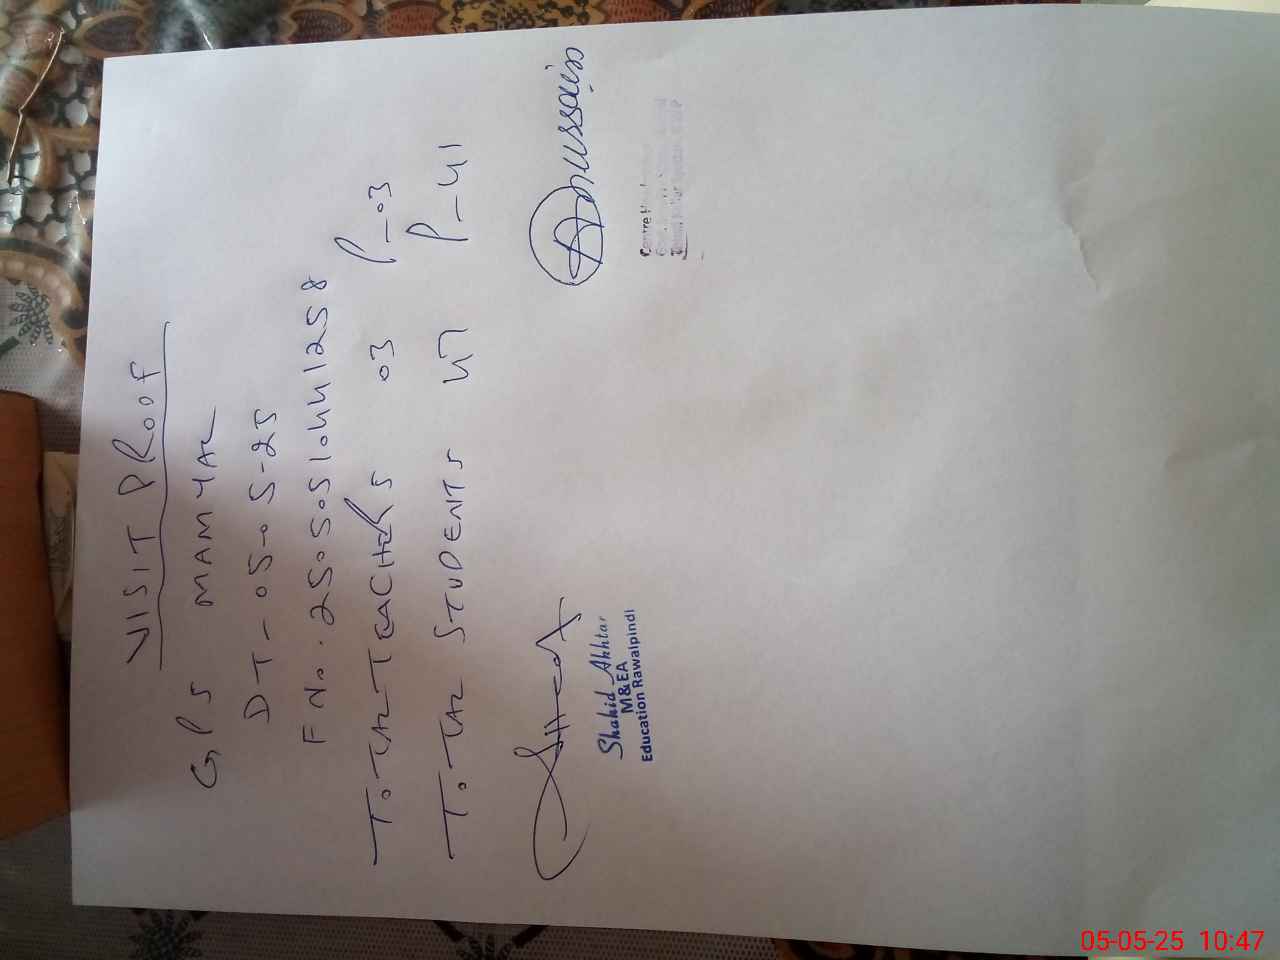 VISIT PROOF
GPS MAMYAL
DT-05-05-25
F No. 25050510441258
TOTAL TEACHERS 03 P-03
TOTAL STUDENTS 47 P-41
Shahid Akhtar
M&EA
Education Rawalpindi
Centre
05-05-25 10:47